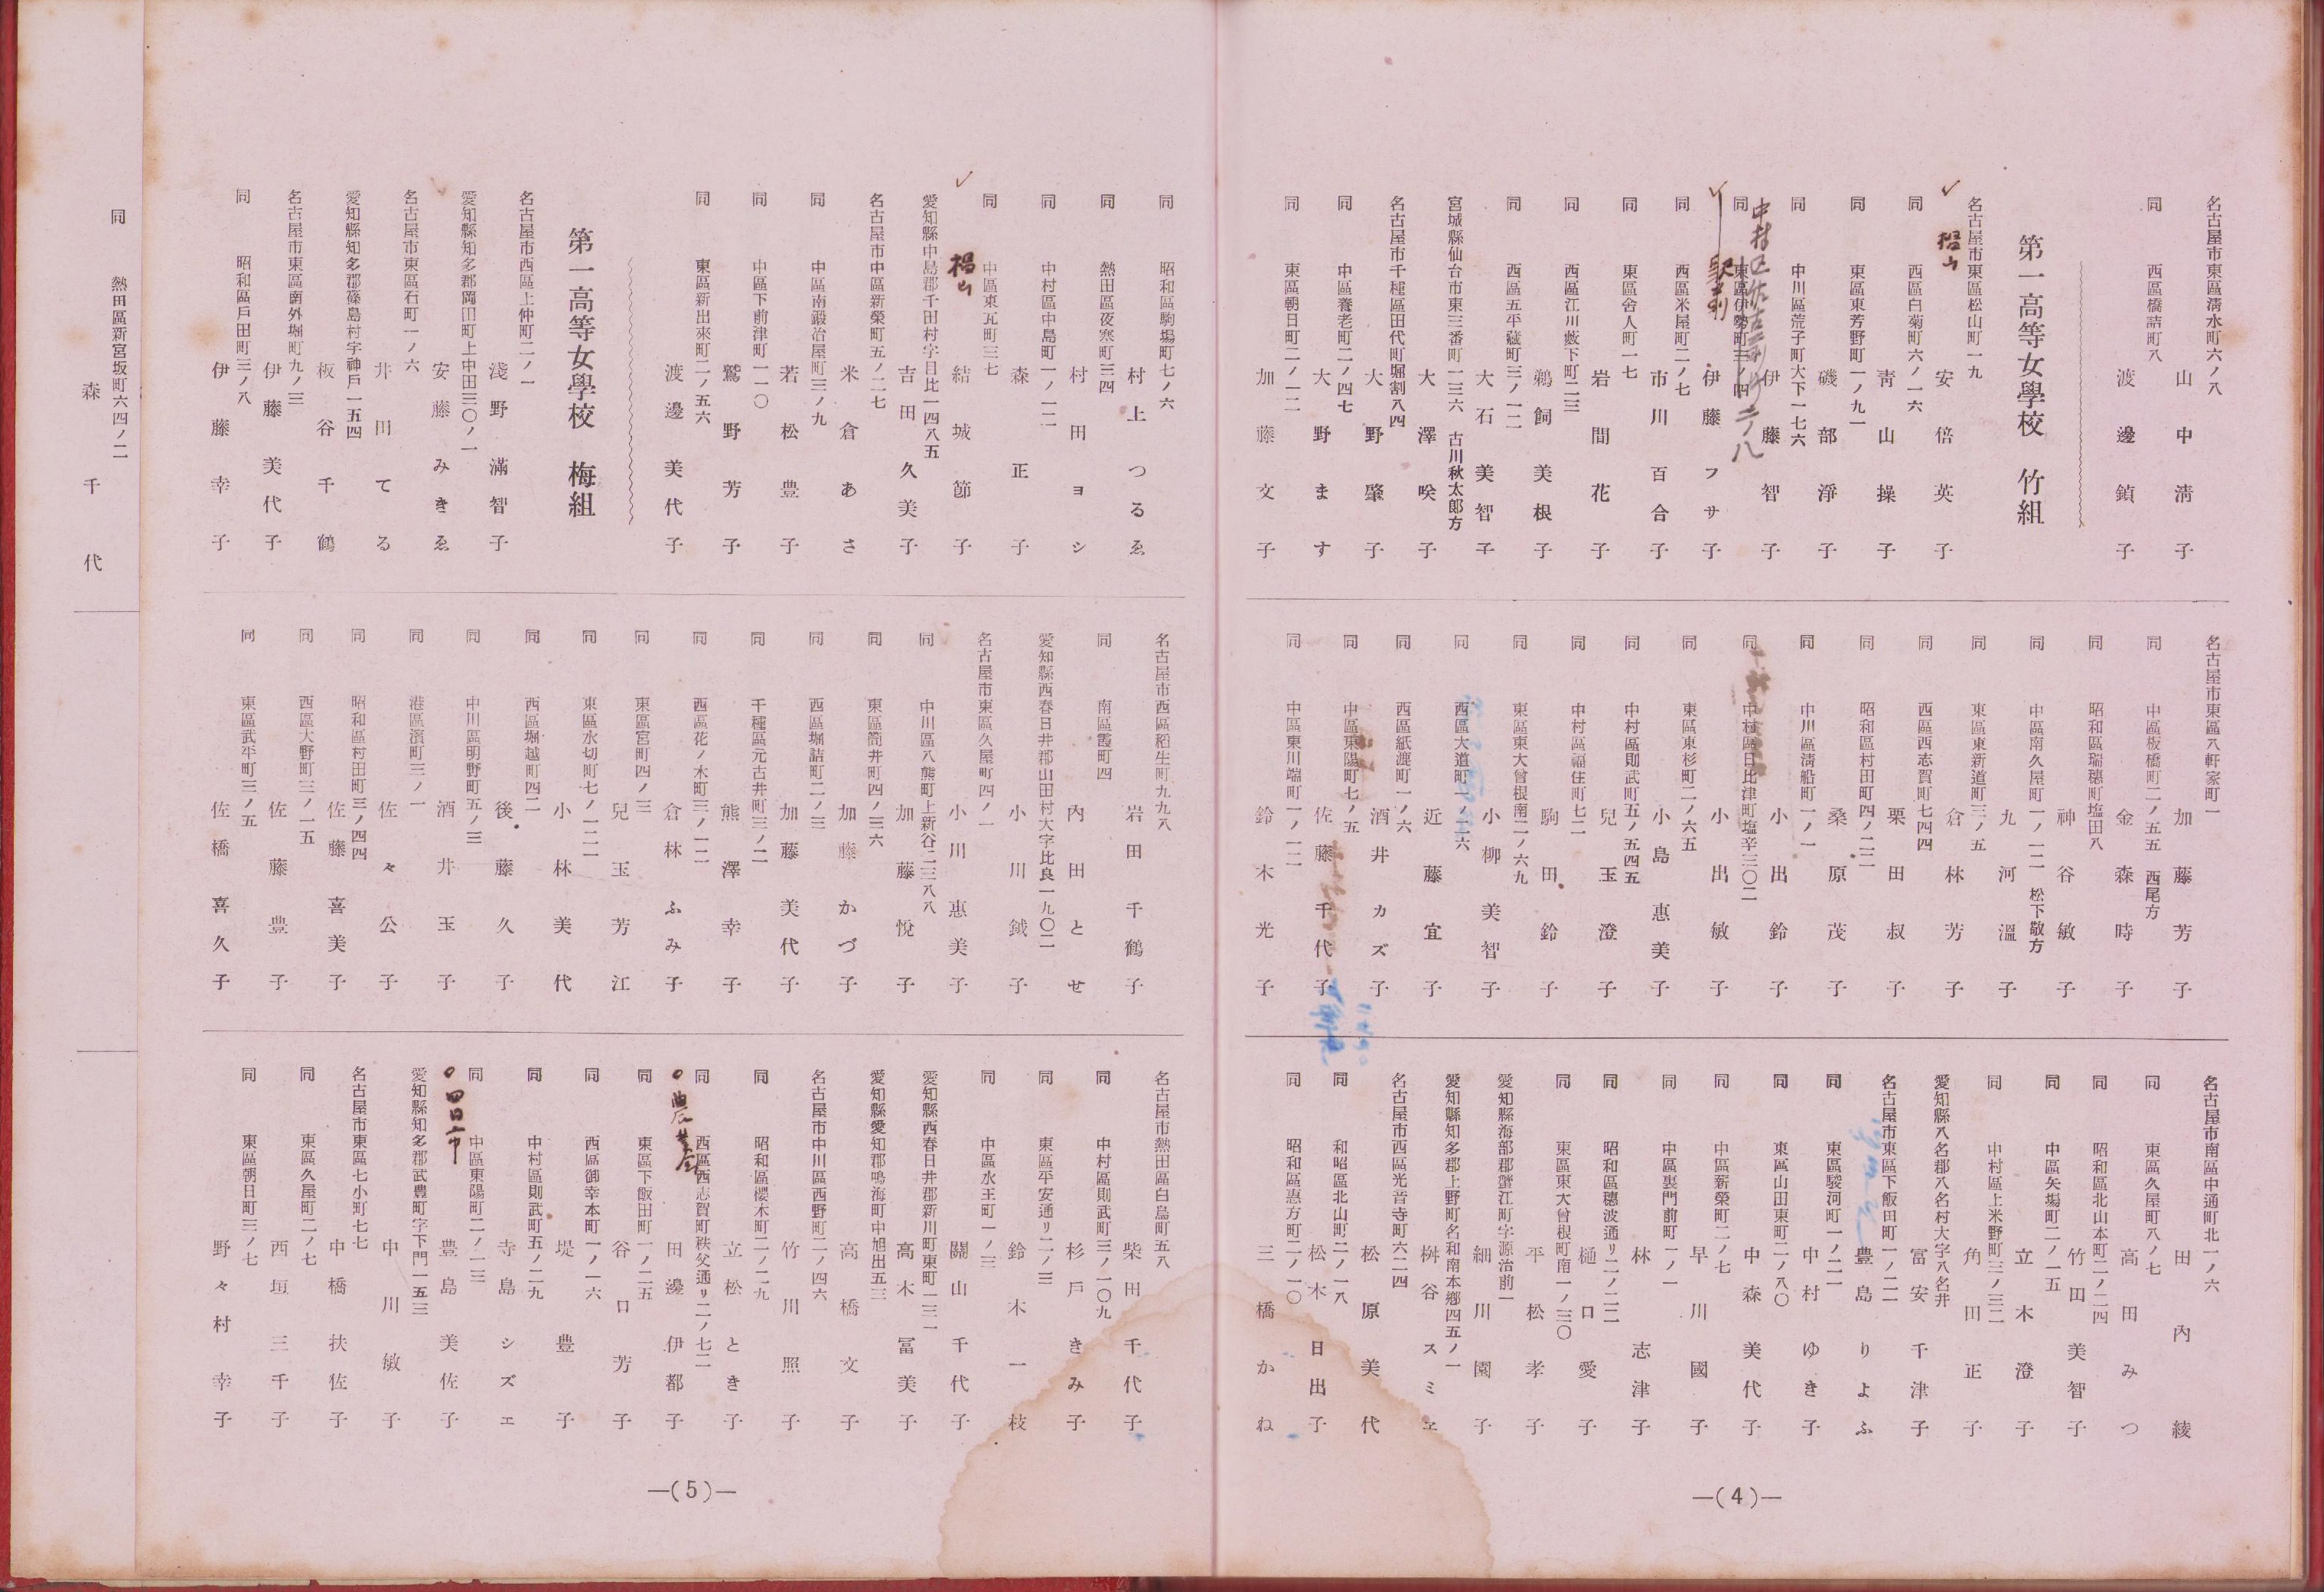 名古屋市東區清水町六ノ八
山中清子
同 西區橋詰町八
渡邊鎮子
第一高等女學校 竹組
名古屋市東區松山町一九
安倍英子
同 西區白菊町六ノ一六
青山操子
同 東區東芳野町一ノ九一
磯部淨子
同 中川區荒子町大下一七六
伊藤智子
同 東區伊勢町三ノ四
伊藤フサ子
同 西區米屋町二ノ七
市川百合子
同 東區舍人町一七
岩間花子
同 西區江川藪下町二三
鵜飼美根子
同 西區五平藏町三ノ一二
大石美智子
宮城縣仙台市東三番町一三六 古川秋太郎方
大澤咲子
名古屋市千種區田代町堀割八四
大野肇子
同 中區養老町二ノ四七
大野ます
同 東區朝日町二ノ一二
加藤文子
名古屋市東區八軒家町一
加藤芳子
同 中區板橋町二ノ五五 西尾方
金森時子
同 昭和區瑞穗町塩田八
神谷敏子
同 中區南久屋町一ノ一二 松下敬方
九河溫子
同 東區東新道町三ノ五
倉林芳子
同 西區西志賀町七四四
栗田叔子
同 昭和區村田町四ノ二二
桑原茂子
同 中川區清船町一ノ一
小出鈴子
同 中村區日比津町塩辛三〇二
小出敏子
同 東區東杉町二ノ六五
小島惠美子
同 中村區則武町五ノ五四五
兒玉澄子
同 中村區福住町七二
駒田鈴子
同 東區東大曾根南二ノ六九
小柳美智子
同 西區大道町一ノ二六
近藤宜子
同 西區紙漉町一ノ六
酒井カズ子
同 中區東陽町七ノ五
佐藤千代子
同 中區東川端町一ノ一二
鈴木光子
名古屋市南區中通町北一ノ六
田內綾
同 東區久屋町八ノ七
高田みつ
同 昭和區北山本町二ノ二四
竹田美智子
同 中區矢場町二ノ一五
立木澄子
同 中村區上米野町三ノ三二
角田正子
愛知縣八名郡八名村大字八名井
富安千津子
名古屋市東區下飯田町一ノ二一
豊島りよふ
同 東區駿河町一ノ二一
中村ゆき子
同 東區山田東町二ノ八〇
中森美代子
同 中區新榮町二ノ七
早川國子
同 中區裏門前町一ノ一
林志津子
同 昭和區穗波通リ二ノ二二
樋口愛子
同 東區東大曾根町南一ノ三〇
平松孝子
愛知縣海部郡蟹江町字源治前一
細川園子
愛知縣知多郡上野町名和南本郷四五ノ一
桝谷スミヱ
名古屋市西區光音寺町六二四
松原美代
同 和昭區北山町二ノ一八
松木日出子
同 昭和區惠方町二ノ一〇
三橋かね
―(4)―
同 昭和區駒場町七ノ六
村上つるゑ
同 熱田區夜寒町三四
村田ヨシ
同 中村區中島町一ノ一二
森正子
同 中區東瓦町三七
結城節子
愛知縣中島郡千田村字目比一四八五
吉田久美子
名古屋市中區新榮町五ノ二七
米倉あさ
同 中區南鍛冶屋町三ノ九
若松豊子
同 中區下前津町一一〇
鷲野芳子
同 東區新出來町二ノ五六
渡邊美代子
第一高等女學校 梅組
名古屋市西區上仲町二ノ一
淺野滿智子
愛知縣知多郡岡田町上中田三〇ノ一
安藤みきゑ
名古屋市東區石町一ノ六
井田てる
愛知縣知多郡篠島村字神戶一五四
板谷千鶴
名古屋市東區南外堀町九ノ三
伊藤美代子
同 昭和區戶田町三ノ八
伊藤幸子
名古屋市西區稻生町九九八
岩田千鶴子
同 南區霞町四
內田とせ
愛知縣西春日井郡山田村大字比良一九〇二
小川鉞子
名古屋市東區久屋町四ノ一
小川惠美子
同 中川區八熊町上新谷二三八八
加藤悅子
同 東區筒井町四ノ三六
加藤かづ子
同 西區堀詰町二ノ三
加藤美代子
同 千種區元古井町三ノ二
熊澤幸子
同 西區花ノ木町三ノ一二
倉林ふみ子
同 東區宮町四ノ三
兒玉芳江
同 東區水切町七ノ一二一
小林美代
同 西區堀越町四二
後藤久子
同 中川區明野町五ノ三
酒井玉子
同 港區濱町三ノ一
佐々公子
同 昭和區村田町三ノ四四
佐藤喜美子
同 西區大野町三ノ一五
佐藤豊子
同 東區武平町三ノ五
佐橋喜久子
名古屋市熱田區白鳥町五八
柴田千代子
同 中村區則武町三ノ一〇九
杉戶きみ子
同 東區平安通リ二ノ三
鈴木一枝
同 中區水王町一ノ三
關山千代子
愛知縣西春日井郡新川町東町一三一
高木冨美子
愛知縣愛知郡鳴海町中旭出五三
高橋文子
名古屋市中川區西野町二ノ四六
竹川照子
同 昭和區櫻木町二ノ二九
立松とき子
同 西區西志賀町秩父通リ二ノ七二
田邊伊都子
同 東區下飯田町一ノ二五
谷口芳子
同 西區御幸本町一ノ一六
堤豊子
同 中村區則武町五ノ二九
寺島シズエ
同 中區東陽町二ノ一三
四日市
豊島美佐子
愛知縣知多郡武豊町字下門一五三
中川敏子
名古屋市東區七小町七七
中橋扶佐子
同 東區久屋町二ノ七
西垣三千子
同 東區朝日町三ノ七
野々村幸子
―(5)―
同 熱田區新宮坂町六四ノ二
森千代